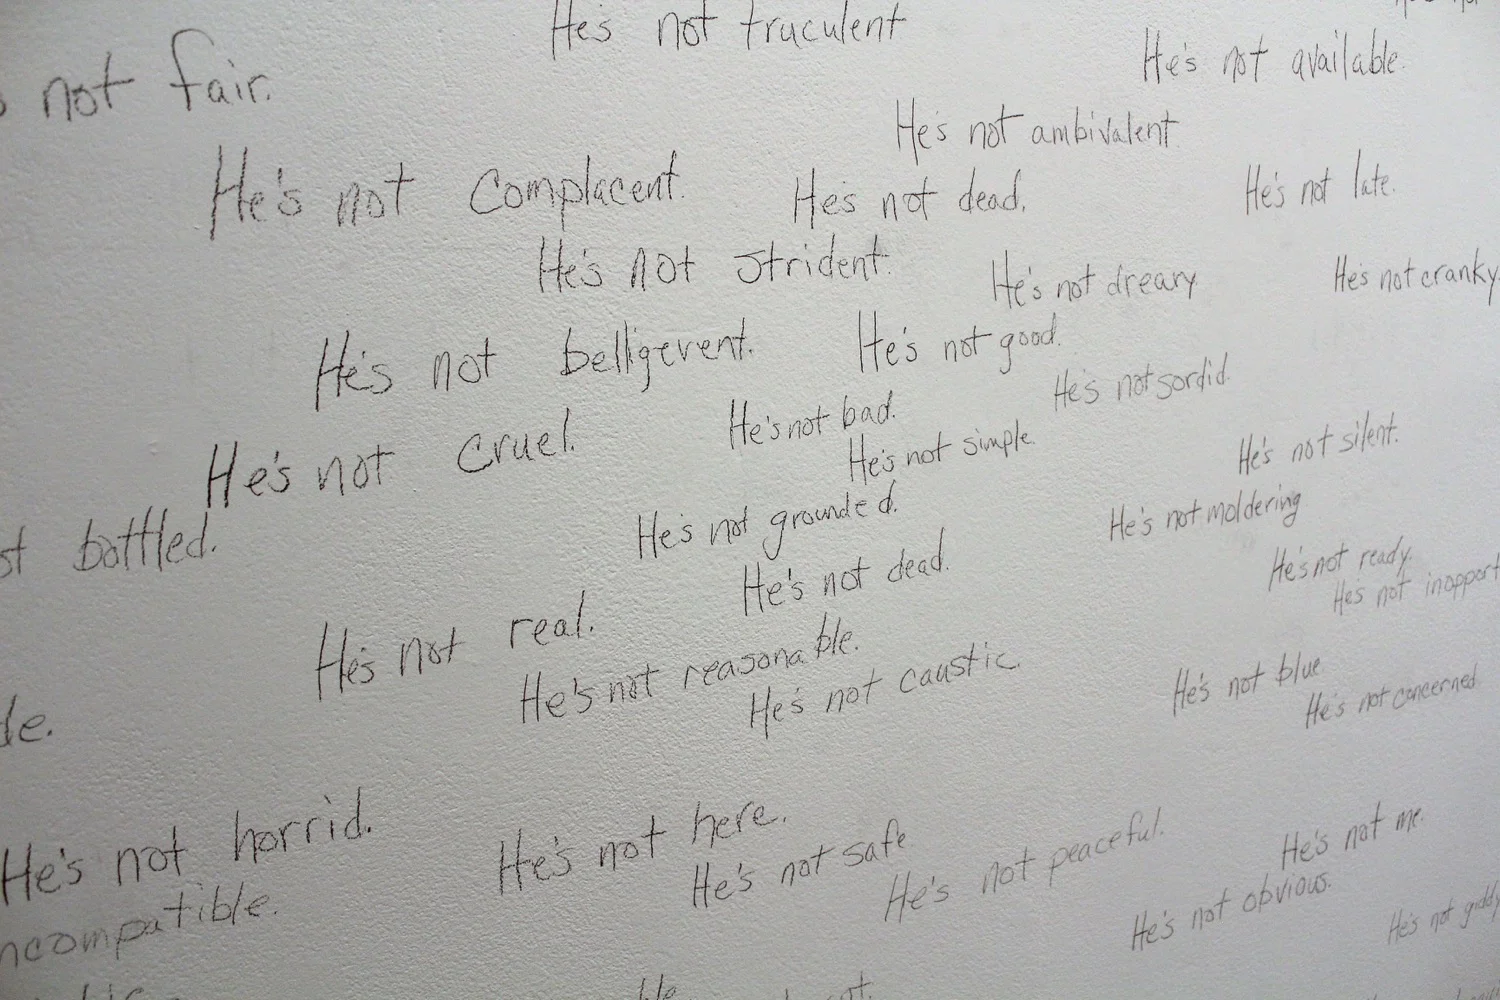 He's not truculent
He's not available.
not fair.
He's not ambivalent.
He's not complacent.
He's not dead.
He's not late.
He's not strident.
He's not dreary
He's not cranky.
He's not belligerent.
He's not good.
He's not sordid.
He's not bad.
He's not cruel.
He's not simple.
He's not silent.
He's not grounded.
He's not moldering
bottled.
He's not dead.
He's not ready.
He's not inopport
He's not real.
He's not reasonable.
He's not caustic.
He's not blue
He's not concerned.
de.
He's not horrid.
He's not here.
He's not safe
He's not peaceful.
He's not me.
He's not obvious.
ncompatible.
He's not giddy
He